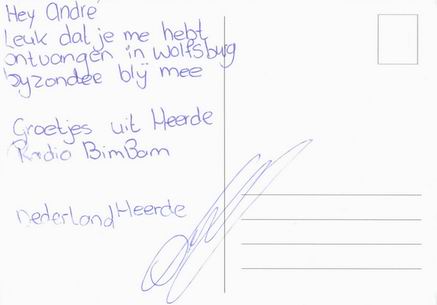 Hey André
Leuk dat je me hebt
ontvangen in Wolfsburg
byzondee blij mee
Groetjes uit Heerde
Radio BimBam
Nederland Heerde